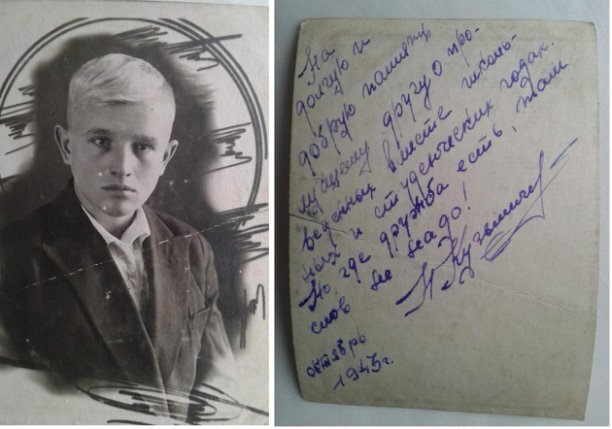 На
долгую и
добрую память
лучшему другу о про-
веденных вместе школь-
ных и студенческих годах.
Но где дружба есть, там
слов не надо!
октябрь
194 г.